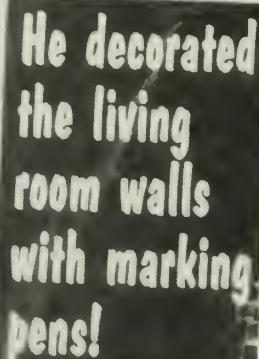 He decorated
the living
room walls
with marking
pens!